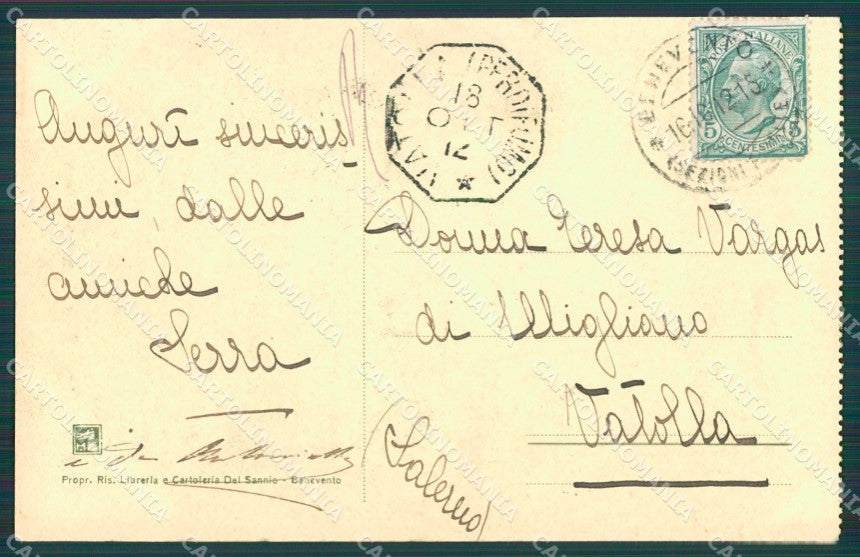 Auguri sinceris-
simi, dalle
amiche
Serra
Propr. Ris. Libreria e Cartoleria Del Sannio - Benevento
VATOLLA (PERDIFUMO)
18
OTT
12
BENEVENTO
16
12
(SEZIONI
POSTE ITALIANE
5 CENTESIMI 5
Donna Teresa Vargas
di Migliano
Vatolla
(Salerno)
CARTOLINOMANIA